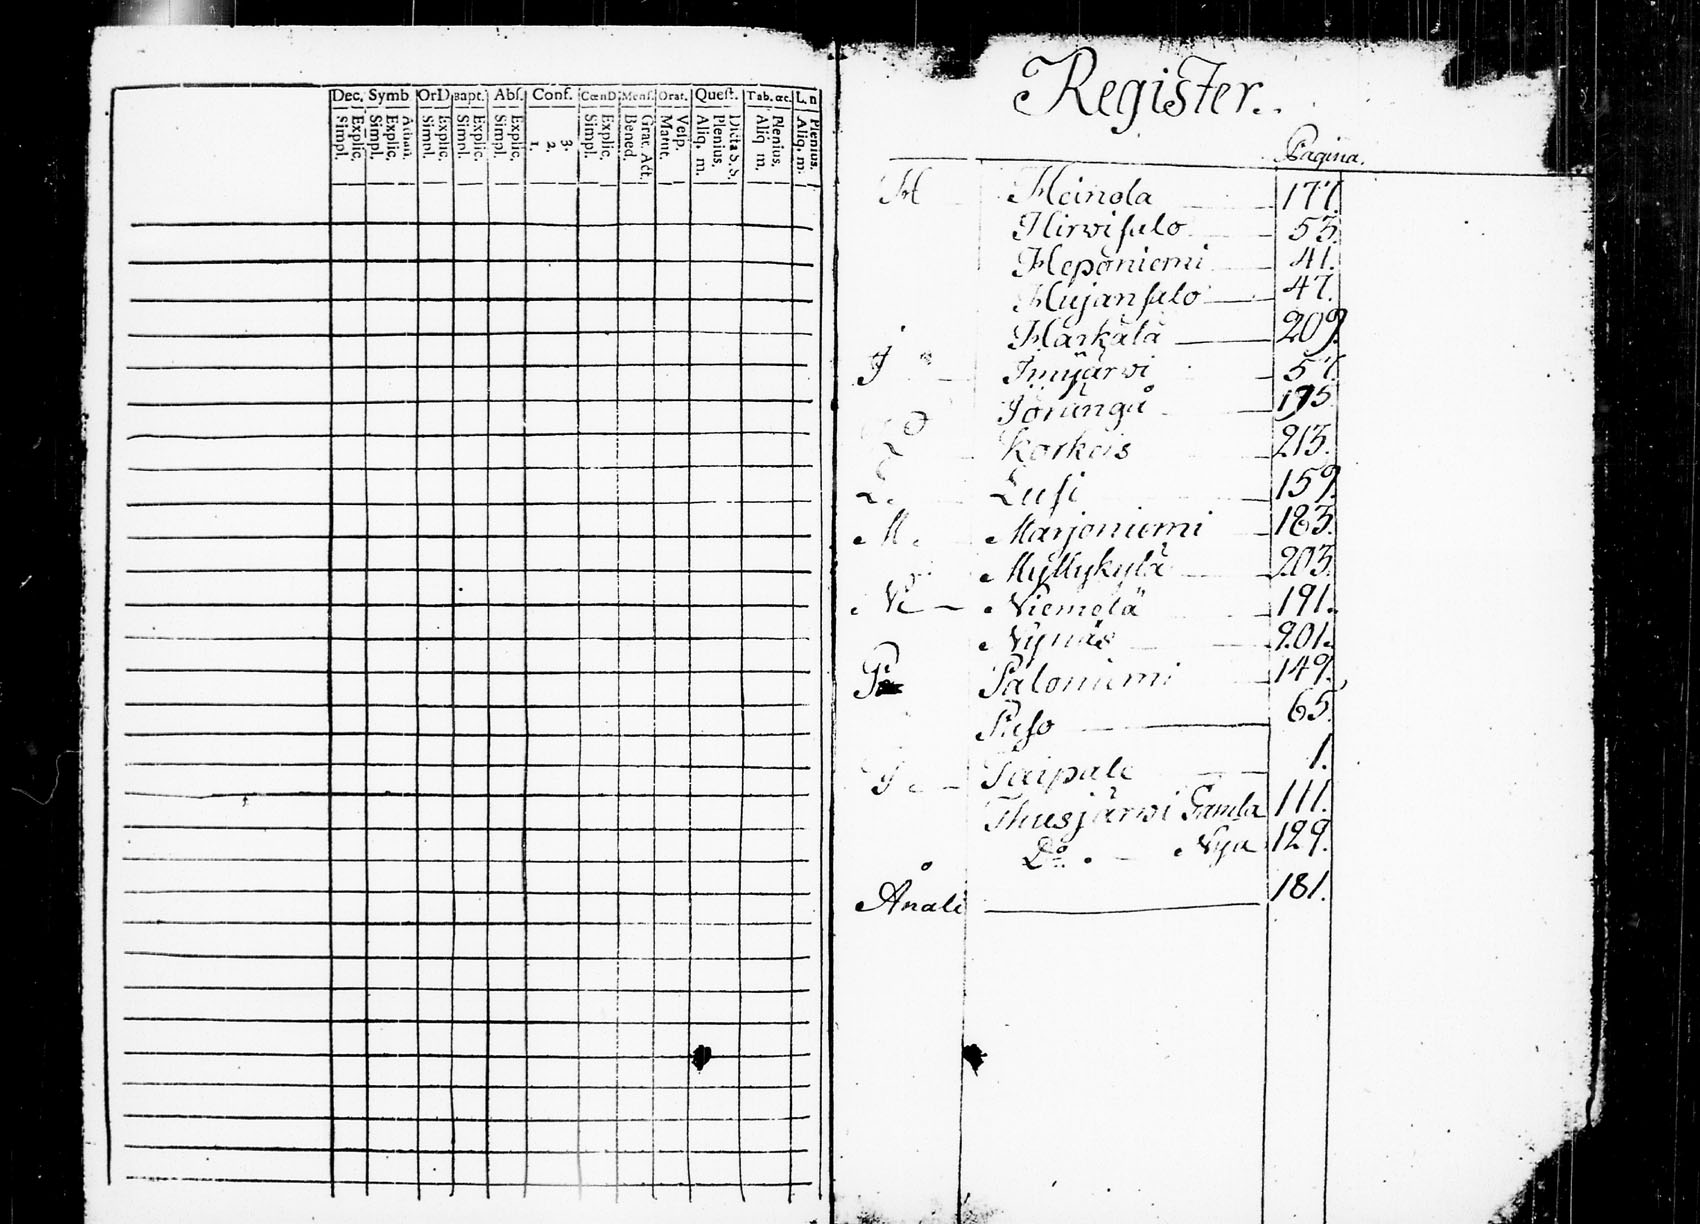 Dec. Symb OrD Bapt. Abs. Conf. CœnD Mens. Orat. Quest. Tab. œc. L. n
Simpl. Explic. Simpl. Explic. Athan. Simpl. Explic. Simpl. Explic. Simpl. Explic. 1. 2. 3. Simpl. Explic. Bened. Grat. Act. Matut. Vesp. Aliq. m. Plenius. Dicta S. S. Aliq m. Plenius. Aliq. m. Plenius.
Register.
Pagina.
H Heinola 177.
Hirvisalo 53.
Heponiemi 41.
Hujansalo 47.
Härkälä 209.
J Imijärvi 57.
Jorängå 175.
Korkeis 213.
L. Lusi 159.
M. Marjoniemi 183.
Myllykylä 203.
N Niemelä 191.
Nynäs 201.
P Paloniemi 149.
Puso 65.
T Taipale 1.
Thusjärvi Gamla 111.
Do. Nya 129.
Ånali 181.